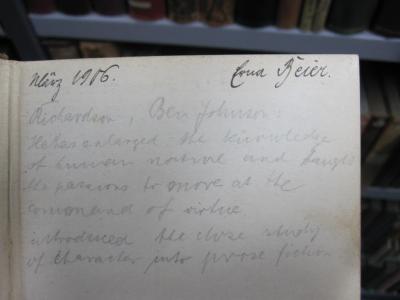 März 1906. Erna Beier.
Richardson, Ben Johnson:
He has enlarged the knowledge
of human nature and taught
the passions to move at the
command of virtue
introduced the close study
of character into prose fiction